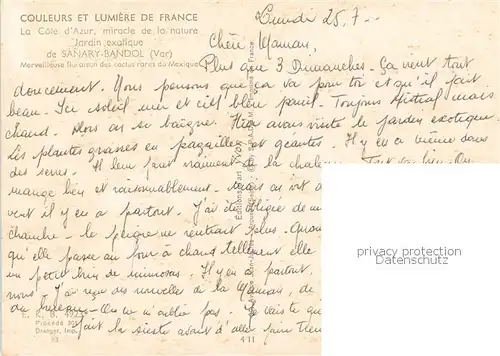 COULEURS ET LUMIÈRE DE FRANCE
La Côte d'Azur, miracle de la nature
Jardin exotique
de SANARY-BANDOL (Var)
Merveilleuse floraison des cactus rares du Mexique
Lundi 25.7 --
Chère Maman,
Plus que 3 Dimanches. Ça vient tout
doucement. Nous pensons que ça va pour toi et qu'il fait
beau. Ici soleil mer et ciel bleu pareil. Toujours Mistral mais
chaud. Alors on se baigne. Hier avons visité le jardin exotique.
Les plantes grasses en pagailles et géantes. Il y en a même dans
des serres. Il leur faut vraiment de la
mange bien et raisonnablement.
vent il y en a partout. J'ai été obligée de
chambre - le peigne ne rentrait plus.
qu'elle passe au four à chaud tellement elle
un petit brin de mimosas. Il y en a partout,
nous. J'ai reçu des nouvelles de la Maman, de
On ne m'oublie pas. Je
fait la sieste avant d'aller faire
Editions d'art YVON
Draeger, Imp.
4-11
privacy protection
Datenschutz